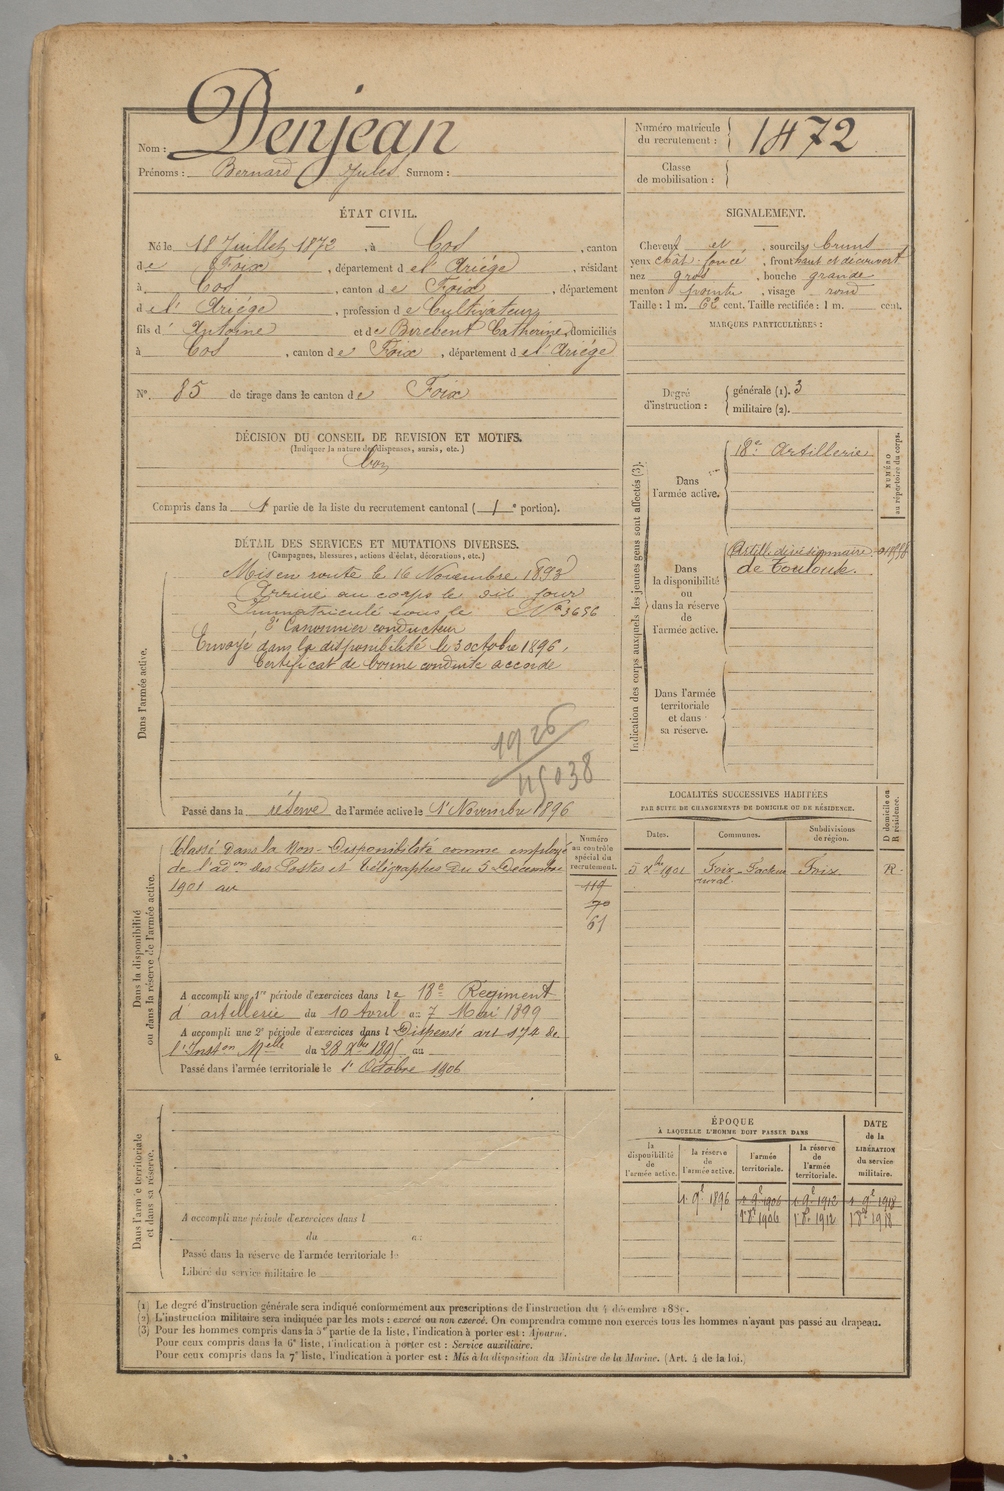 Nom : Denjean
Prénoms : Bernard Jules Surnom :
Numéro matricule du recrutement : 1472
Classe de mobilisation :
ÉTAT CIVIL.
Né le 18 Juillet 1872, à Cos, canton
de Foix, département de l'Ariège, résidant
à Cos, canton de Foix, département
de l'Ariège, profession de Cultivateur
fils d'Antoine et de Birebent Catherine, domiciliés
à Cos, canton de Foix, département de l'Ariège
N° 85 de tirage dans le canton de Foix
DÉCISION DU CONSEIL DE REVISION ET MOTIFS.
(Indiquer la nature des dispenses, sursis, etc.)
bon
Compris dans la 1e partie de la liste du recrutement cantonal (1e portion).
SIGNALEMENT.
Cheveux et, sourcils bruns
yeux chât. foncé, front haut et découvert
nez gros, bouche grande
menton pointu, visage rond
Taille : 1 m. 62 cent. Taille rectifiée : 1 m. cent.
MARQUES PARTICULIÈRES :
Degré d'instruction :
générale (1). 3
militaire (2).
DÉTAIL DES SERVICES ET MUTATIONS DIVERSES.
(Campagnes, blessures, actions d'éclat, décorations, etc.)
Dans l'armée active.
Mis en route le 16 Novembre 1893
Arrivé au corps le dit jour
Immatriculé sous le N° 3656
2e Canonnier conducteur
Envoyé dans la disponibilité le 3 octobre 1896,
Certificat de bonne conduite accordé
1926
Passé dans la réserve de l'armée active le 1er Novembre 1896
Indication des corps auxquels les jeunes gens sont affectés (3).
NUMÉRO au répertoire du corps.
Dans l'armée active.
18e Artillerie
Dans la disponibilité ou dans la réserve de l'armée active.
Artillie divisionnaire
de Toulouse.
Dans l'armée territoriale et dans sa réserve.
Dans la disponibilité ou dans la réserve de l'armée active.
Numéro au contrôle spécial du recrutement.
Classé dans la Non-Disponibilité comme employé
de l'adon des Postes et Télégraphes du 5 Décembre
1901 au
119
70
61
A accompli une 1re période d'exercices dans le 18e Régiment
d'artillerie du 10 Avril au 7 Mai 1899
A accompli une 2e période d'exercices dans l Dispensé art 174 de
l'Inston Melle du 28 Xbre 1895 au
Passé dans l'armée territoriale le 1er Octobre 1906
LOCALITÉS SUCCESSIVES HABITÉES
PAR SUITE DE CHANGEMENTS DE DOMICILE OU DE RÉSIDENCE.
Dates. Communes. Subdivisions de région. D domicile ou R résidence.
5 Xbre 1901 Foix - Facteur Foix R.
rural
Dans l'armée territoriale et dans sa réserve.
A accompli une période d'exercices dans l
du au
Passé dans la réserve de l'armée territoriale le
Libéré du service militaire le
ÉPOQUE
À LAQUELLE L'HOMME DOIT PASSER DANS
la disponibilité de l'armée active. la réserve de l'armée active. l'armée territoriale. la réserve de l'armée territoriale.
DATE de la LIBÉRATION du service militaire.
1. 9e 1896 1. 9e 1906 1. 9e 1912 1. 9e 1918
1 8e 1906 1 8e 1912 1 8e 1918
(1) Le degré d'instruction générale sera indiqué conformément aux prescriptions de l'instruction du 4 décembre 1889.
(2) L'instruction militaire sera indiquée par les mots : exercé ou non exercé. On comprendra comme non exercés tous les hommes n'ayant pas passé au drapeau.
(3) Pour les hommes compris dans la 5e partie de la liste, l'indication à porter est : Ajourné.
Pour ceux compris dans la 6e liste, l'indication à porter est : Service auxiliaire.
Pour ceux compris dans la 7e liste, l'indication à porter est : Mis à la disposition du Ministre de la Marine. (Art. 4 de la loi.)